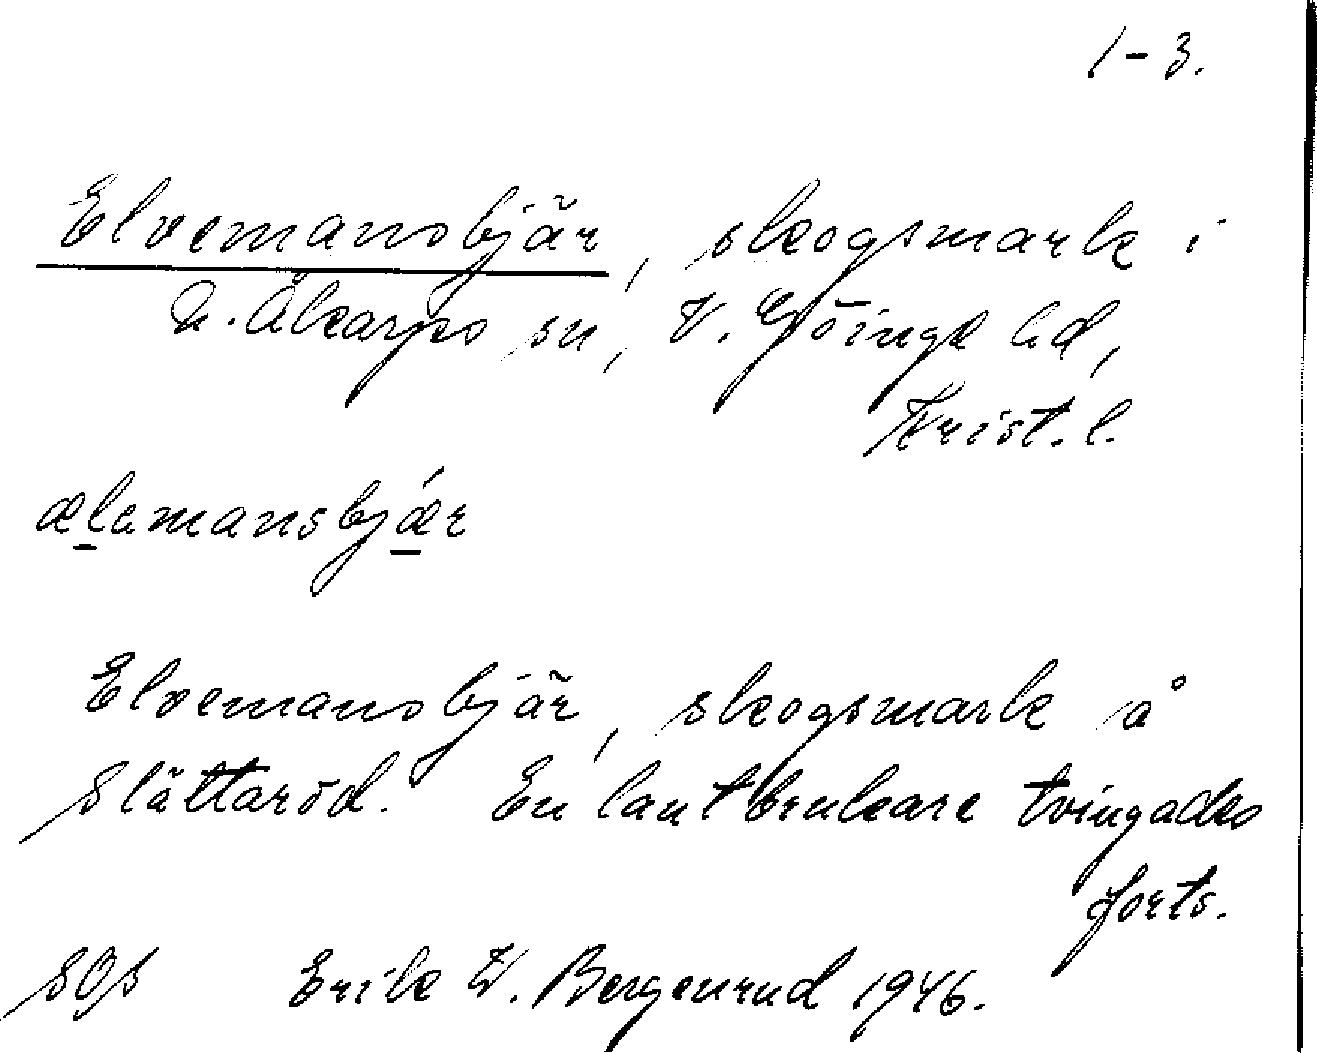 1-3.
Elvemansbjär, skogsmark i
N. Åkarps sn, V. Göinge hd,
Krist. l.
ælamansbjǽr
Elvemansbjär, skogsmark å
Slättaröd. En lantbrukare tvingades
forts.
SOS Erik W. Bergenrud 1946.